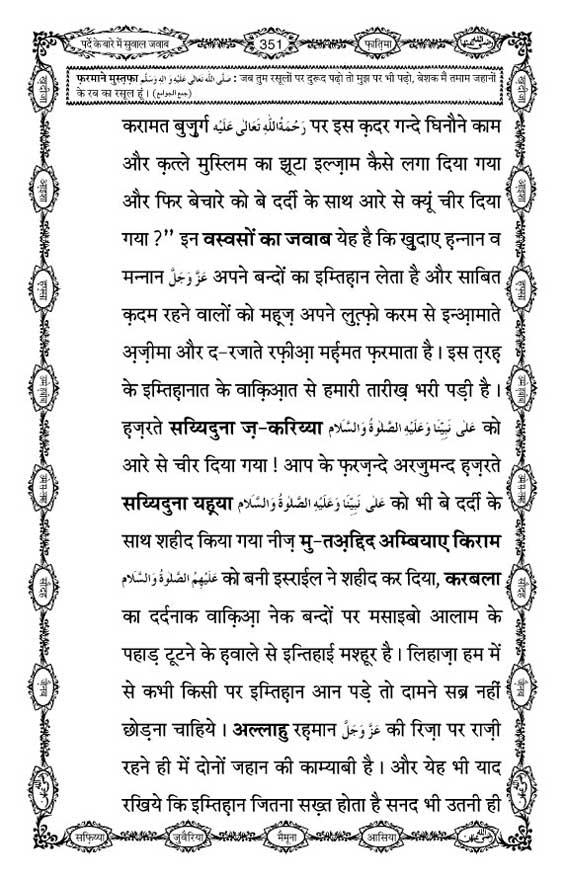 पर्दे के बारे में सुवाल जवाब
351
फ़ातिमा
फ़रमाने मुस्तफ़ा صَلَّى اللهُ تَعَالٰى عَلَيْهِ وَاٰلِهٖ وَسَلَّم : जब तुम रसूलों पर दुरूद पढ़ो तो मुझ पर भी पढ़ो, बेशक मैं तमाम जहानों
के रब का रसूल हूं । (جمع الجوامع)
करामत बुज़ुर्ग رَحْمَةُاللهِ تَعَالٰى عَلَيْهِ पर इस क़दर गन्दे घिनौने काम
और क़त्ले मुस्लिम का झूटा इल्ज़ाम कैसे लगा दिया गया
और फिर बेचारे को बे दर्दी के साथ आरे से क्यूं चीर दिया
गया ?’’ इन वस्वसों का जवाब येह है कि ख़ुदाए हन्नान व
मन्नान عَزَّوَجَلَّ अपने बन्दों का इम्तिहान लेता है और साबित
क़दम रहने वालों को महूज़ अपने लुत्फ़ो करम से इन्आ़माते
अ़ज़ीमा और द-रजाते रफ़ीआ़ मर्हमत फ़रमाता है । इस त़रह़
के इम्तिहानात के वाक़िआ़त से हमारी तारीख़ भरी पड़ी है ।
हज़रते सय्यिदुना ज़-करिय्या عَلٰى نَبِيِّنَا وَعَلَيْهِ الصَّلٰوةُ وَالسَّلَام को
आरे से चीर दिया गया ! आप के फ़रज़न्दे अरजुमन्द हज़रते
सय्यिदुना यहूया عَلٰى نَبِيِّنَا وَعَلَيْهِ الصَّلٰوةُ وَالسَّلَام को भी बे दर्दी के
साथ शहीद किया गया नीज़ मु-तअ़द्दिद अम्बियाए किराम
عَلَيْهِمُ الصَّلٰوةُ وَالسَّلَام को बनी इस्राईल ने शहीद कर दिया, करबला
का दर्दनाक वाक़िआ़ नेक बन्दों पर मसाइबो आलाम के
पहाड़ टूटने के हवाले से इन्तिहाई मश्हूर है । लिहाज़ा हम में
से कभी किसी पर इम्तिहान आन पड़े तो दामने सब्र नहीं
छोड़ना चाहिये । अल्लाहु रहमान عَزَّوَجَلَّ की रिज़ा पर राज़ी
रहने ही में दोनों जहान की काम्याबी है । और येह भी याद
रखिये कि इम्तिहान जितना सख़्त होता है सनद भी उतनी ही
सफ़िय्या
जुवैरिया
मैमूना
आसिया